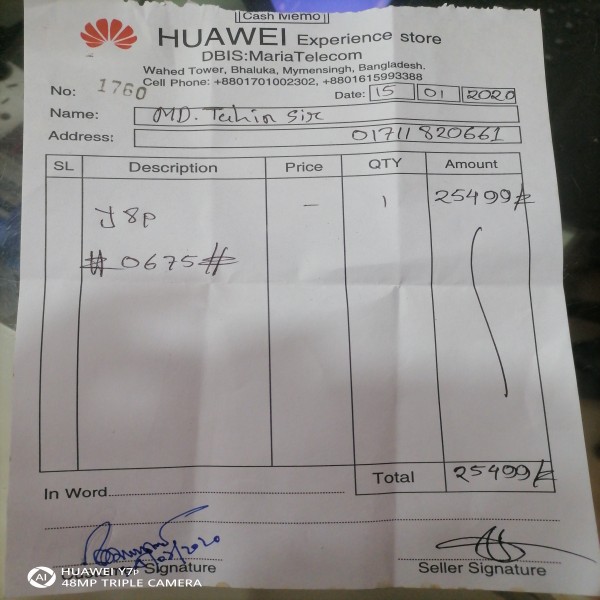 Cash Memo
HUAWEI Experience store
DBIS:MariaTelecom
Wahed Tower, Bhaluka, Mymensingh, Bangladesh.
Cell Phone: +8801701002302, +8801615993388
No: 1760 Date: 15 01 2020
Name: MD. Tuhin Sir
Address: 01711820661
SL Description Price QTY Amount
J 8p – 1 25499/=
# 0675 #
Total 25499/=
In Word
Signature
Seller Signature
AI HUAWEI Y7p
48MP TRIPLE CAMERA